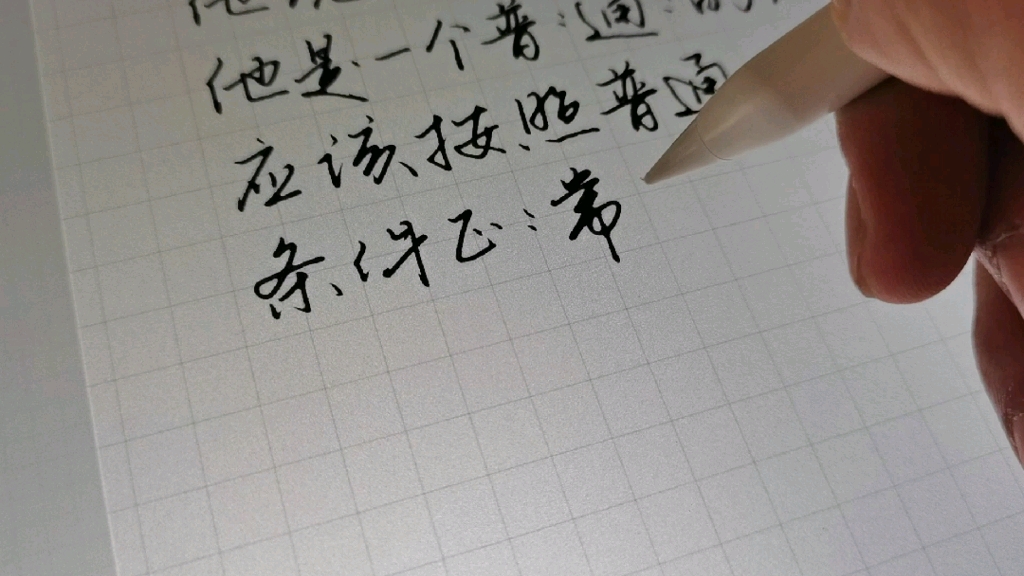 他
他是一个普通的
应该按照普通
条件正常